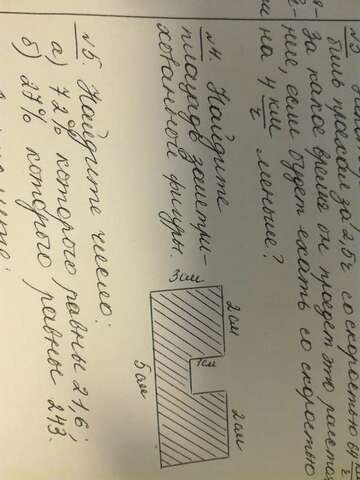 был проехал за 2,5ч со скоростью 64
За какое время он проедет это расстоя-
ние, если будет ехать со скоростью
на 4 км/ч меньше?
№4. Найдите
площадь заштри-
хованной фигуры.
3см
2см
1см
2см
5см
№5. Найдите число:
а) 72% которого равны 21,6;
б) 27% которого равны 243.